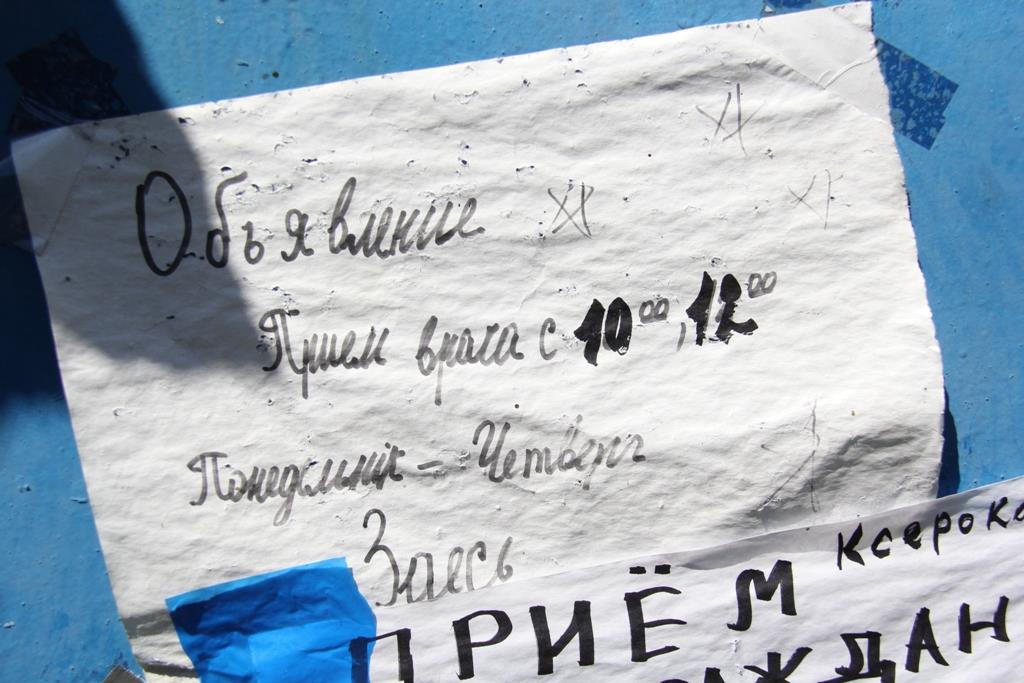 Объявление
Прием врача с 10⁰⁰, 12⁰⁰
Понедельник - Четверг
Здесь
ксероко
ПРИЁМ
АЖДАН